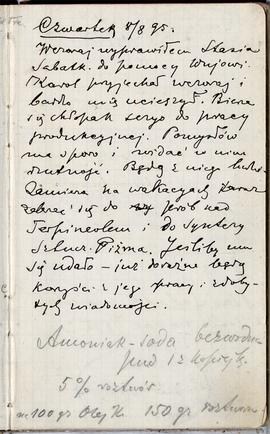 Czwartek 8/8 95.
Wczoraj wyprawiłem Stasia
Sabatk. do pomocy Wujowi.
Karol przyjechał wczoraj i
bardzo mię ucieszył. Bierze
się chłopak serjo do pracy
produkcyjnej. Pomysłów
ma sporo i widać w nim
Będą z niego ludzie.
Zamierza na wakacyach zaraz
zabrać się do prób nad
Terpineolem i do syntezy
Sztucz. Piżma. Jeśliby mu
się udało – już doraźne będą
korzyści z jego pracy i zdoby-
tych wiadomości.
Amoniak-soda bezwodna
pud 12 kopiejk.
5% roztwór
na 100 gr Olejk 150 gr roztworu